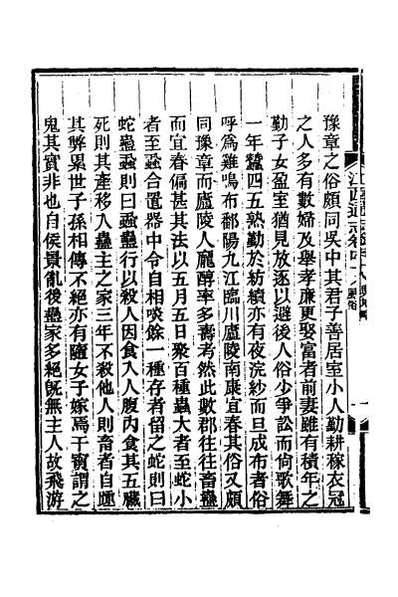 豫章之俗頗同吳中其君子善居室小人勤耕稼衣冠
之人多有數婦及舉孝廉更娶富者前妻雖有積年之
勤子女盈室猶見放逐以避後人俗少爭訟而尙歌舞
一年蠶四五熟勤於紡績亦有夜浣紗而旦成布者俗
呼爲雞鳴布鄱陽九江臨川廬陵南康宜春其俗又頗
同豫章而廬陵人龐醇率多壽考然此數郡往往畜蠱
而宜春偏甚其法以五月五日聚百種蟲大者至蛇小
者至蝨合置器中令自相啖餘一種存者留之蛇則曰
蛇蠱蝨則曰蝨蠱行以殺人因食入人腹內食其五臟
死則其產移入蠱主之家三年不殺他人則畜者自踵
其弊累世子孫相傳不絕亦有隨女子嫁焉干寶謂之
鬼其實非也自侯景亂後蠱家多絕旣無主人故飛游